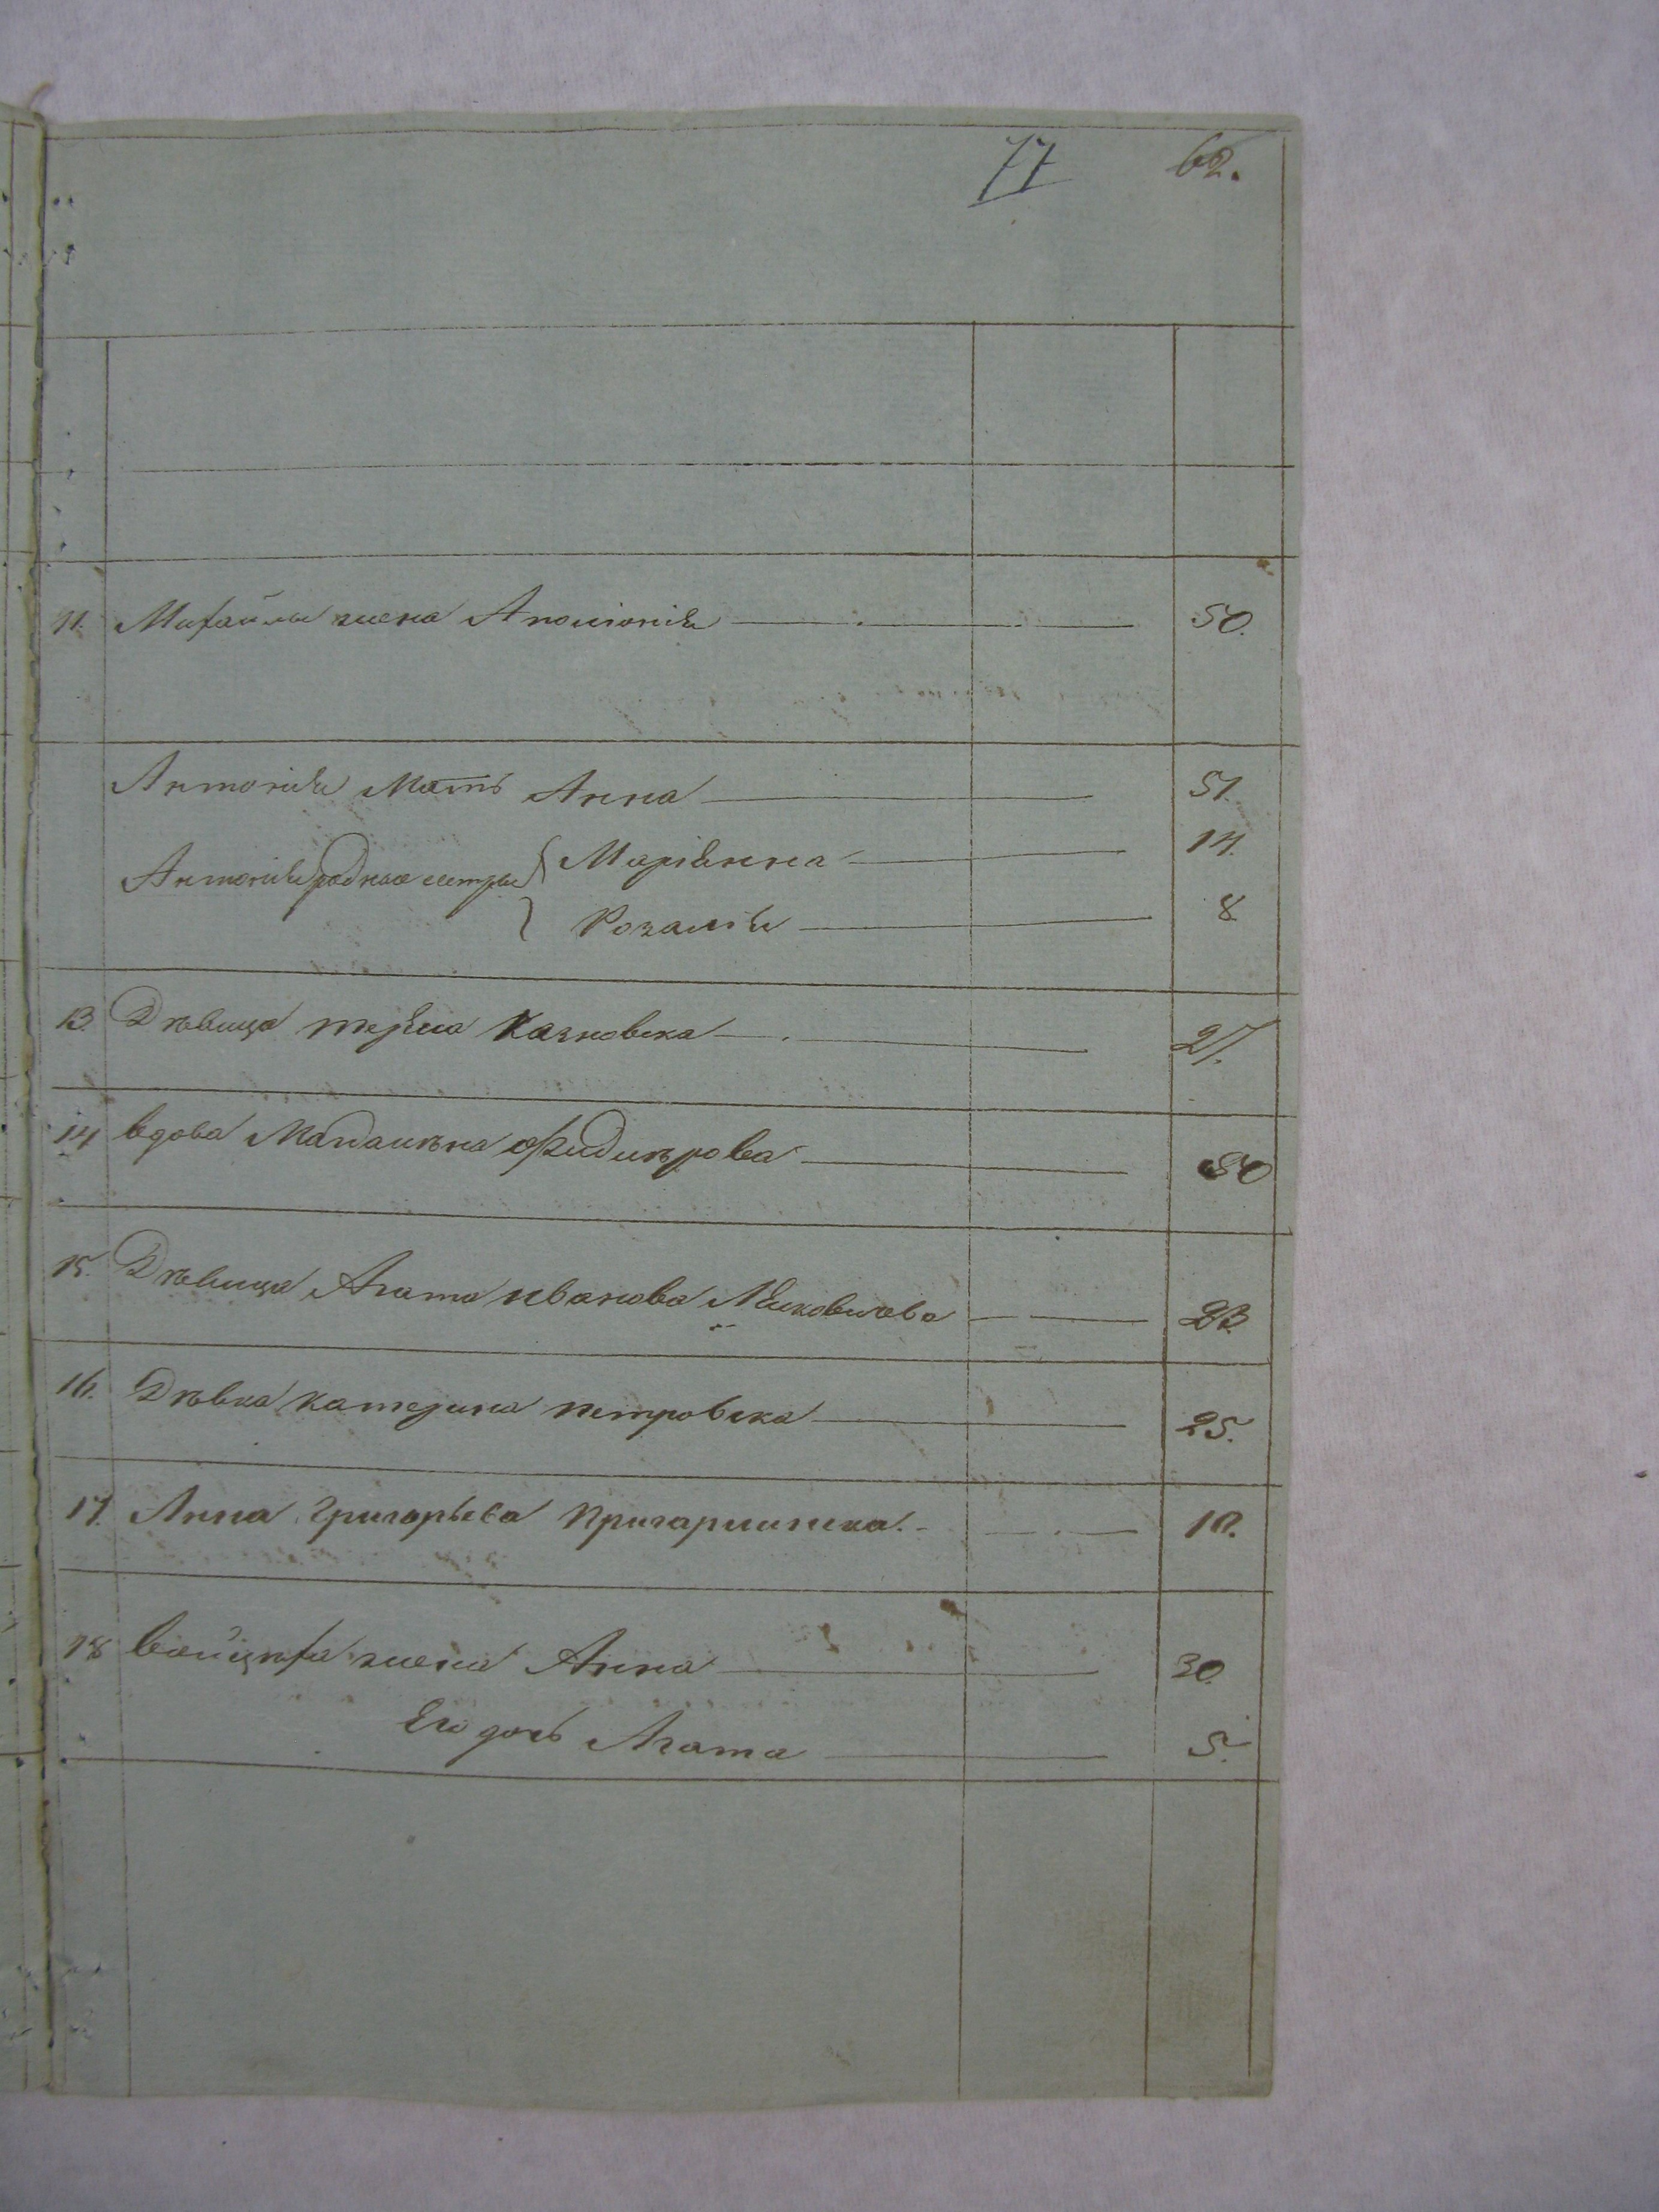 77 62.
11. Михайлы жена Аполонія 50.
Антонія Мать Анна 51.
Антонія родные сестры { Маріянна 14.
Розалія 8
13. Дѣвица терѣса Казновска 27.
14 вдова Магдалѣна 50
15. Дѣвица Агата иванова 23.
16. Дѣвка катерина петровска 25.
17. Анна Григорьева 10.
18 войцѣха жена Анна 30.
Его дочь Агата 5.